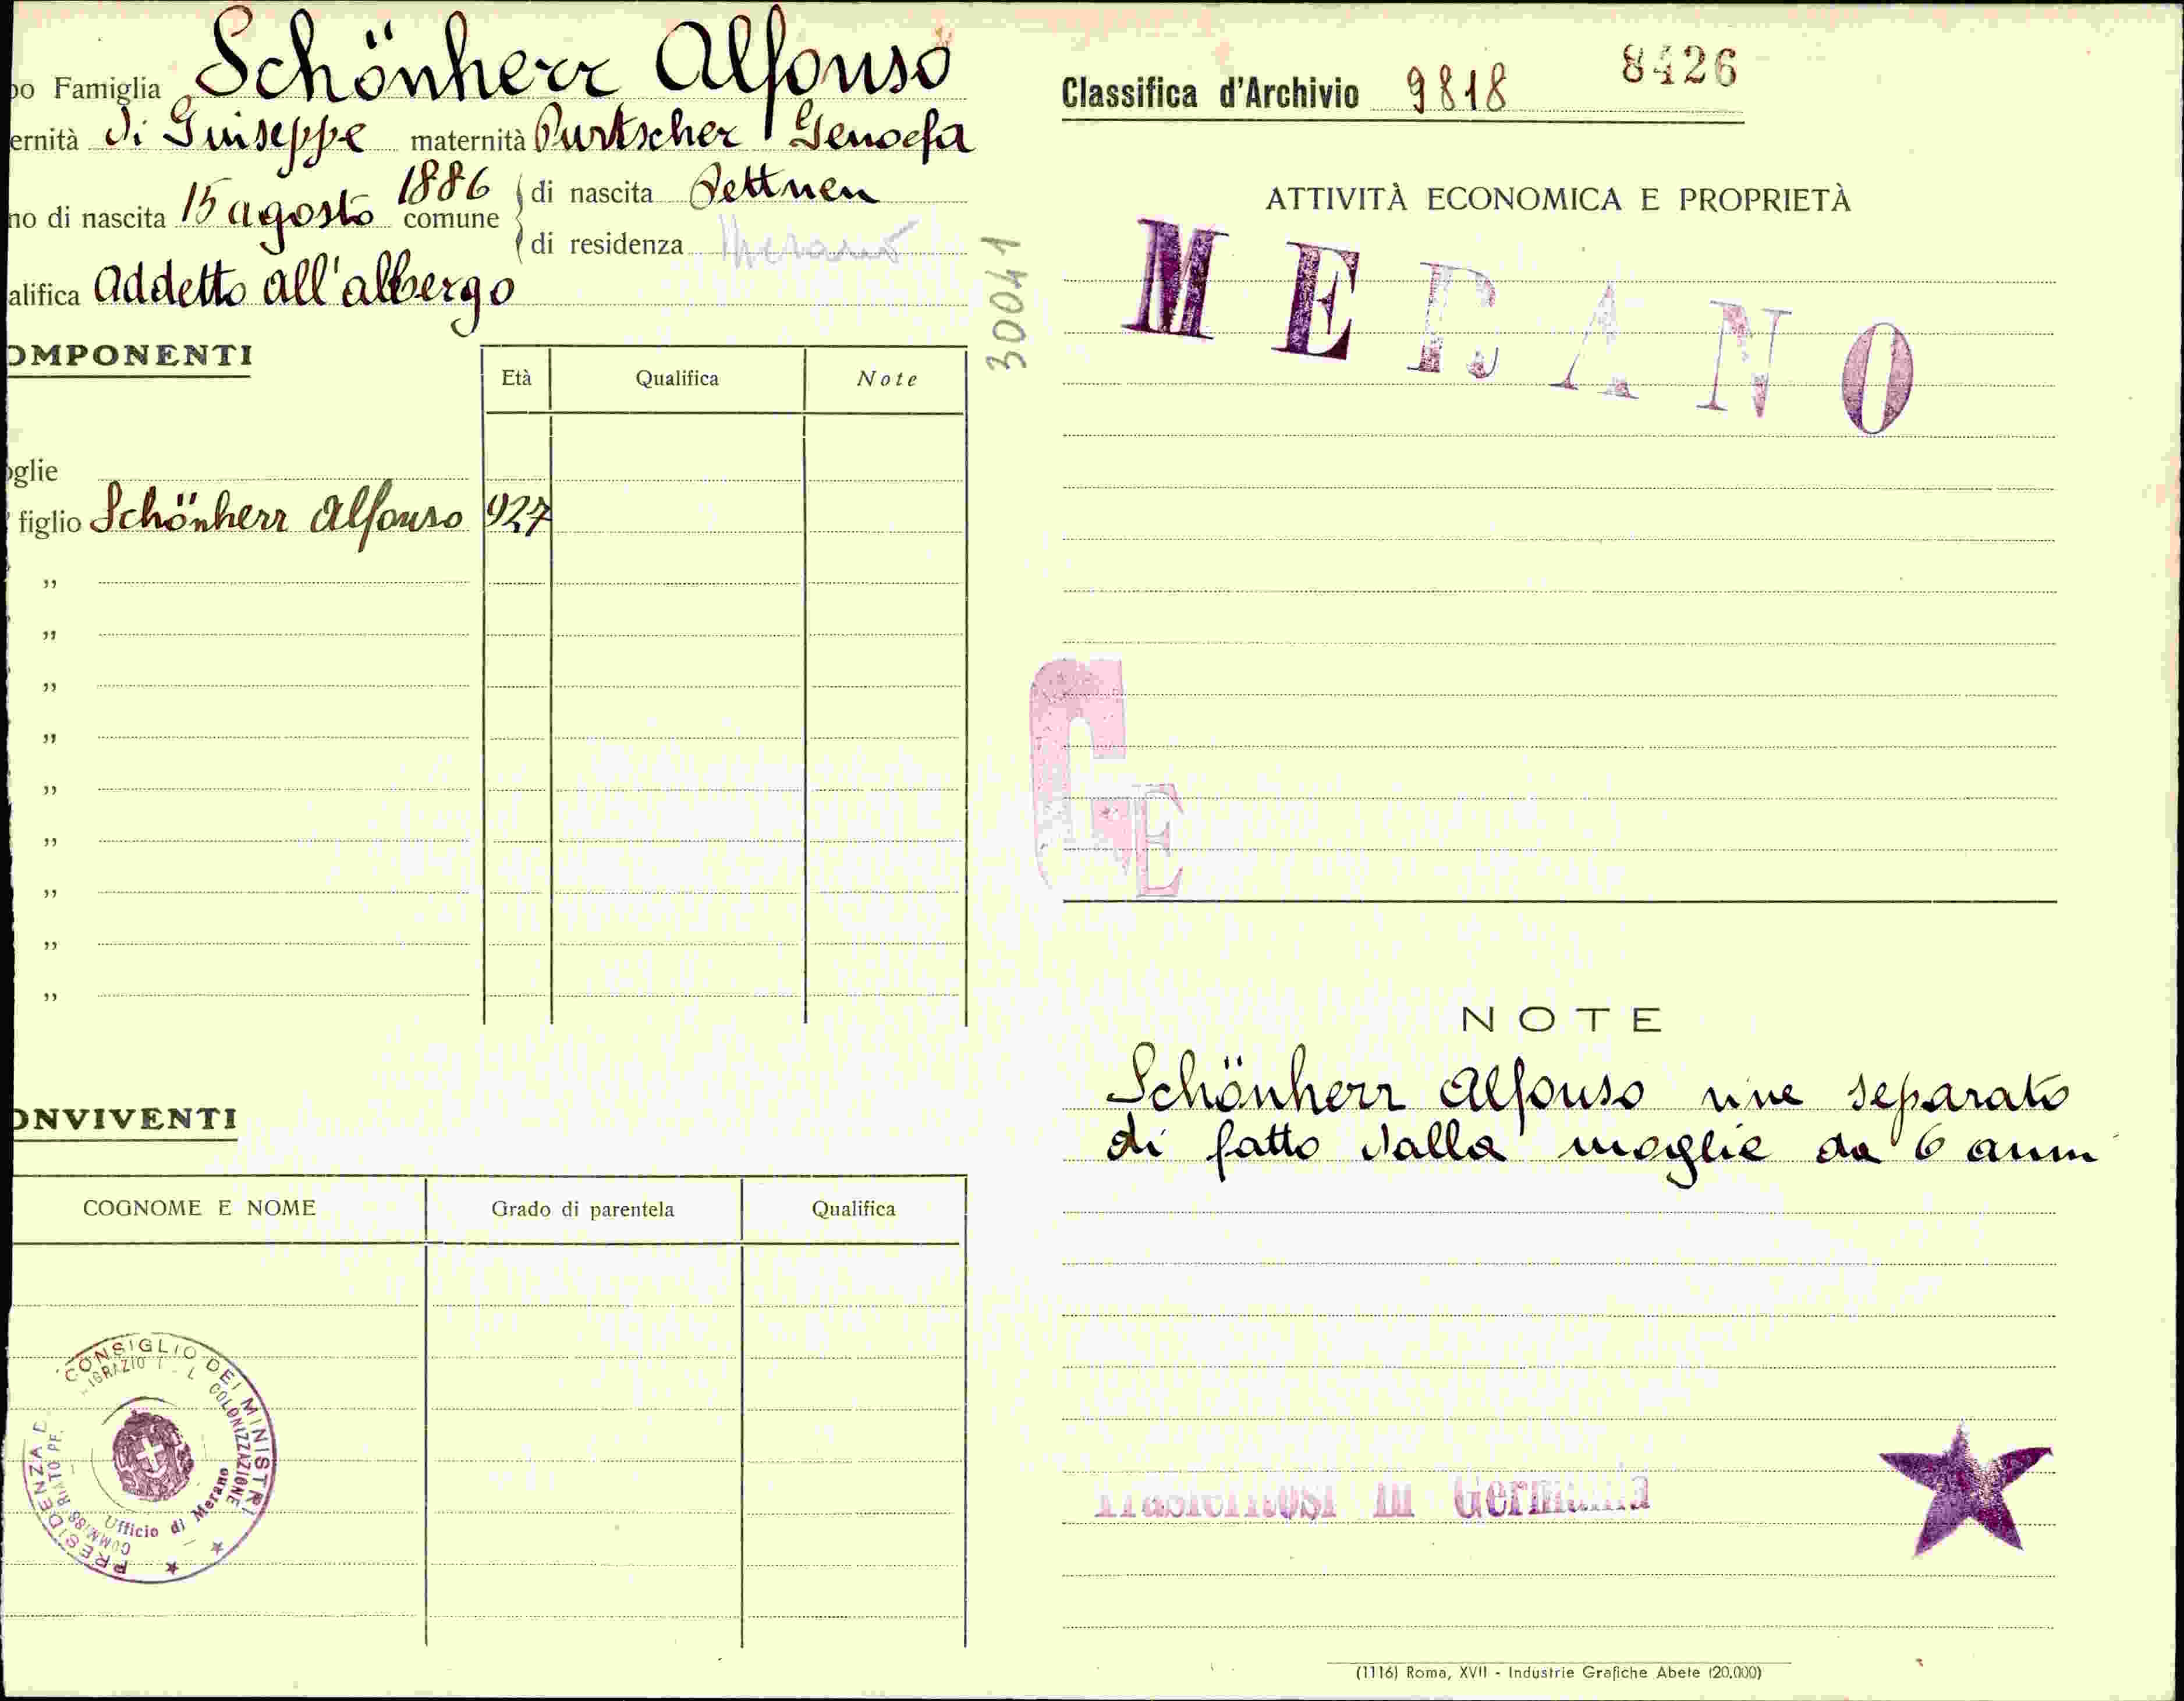 po Famiglia Schönherr Alfonso
ernità di Giuseppe maternità Purtscher Genoefa
no di nascita 15 agosto 1886 comune
di nascita Pettnen
di residenza Merano
alifica addetto all'albergo
OMPONENTI
Età Qualifica Note
oglie
figlio Schönherr Alfonso 927
„
„
„
„
„
„
„
„
„
ONVIVENTI
COGNOME E NOME Grado di parentela Qualifica
PRESIDENZA D CONSIGLIO DEI MINISTRI
COLONIZZAZIONE
Ufficio di Merano
30041
Classifica d'Archivio 9818 8426
ATTIVITÀ ECONOMICA E PROPRIETÀ
MERANO
G E
NOTE
Schönherr Alfonso vive separato
di fatto dalla moglie da 6 anni
Trasferitosi in Germania
(1116) Roma, XVII - Industrie Grafiche Abete (20.000)